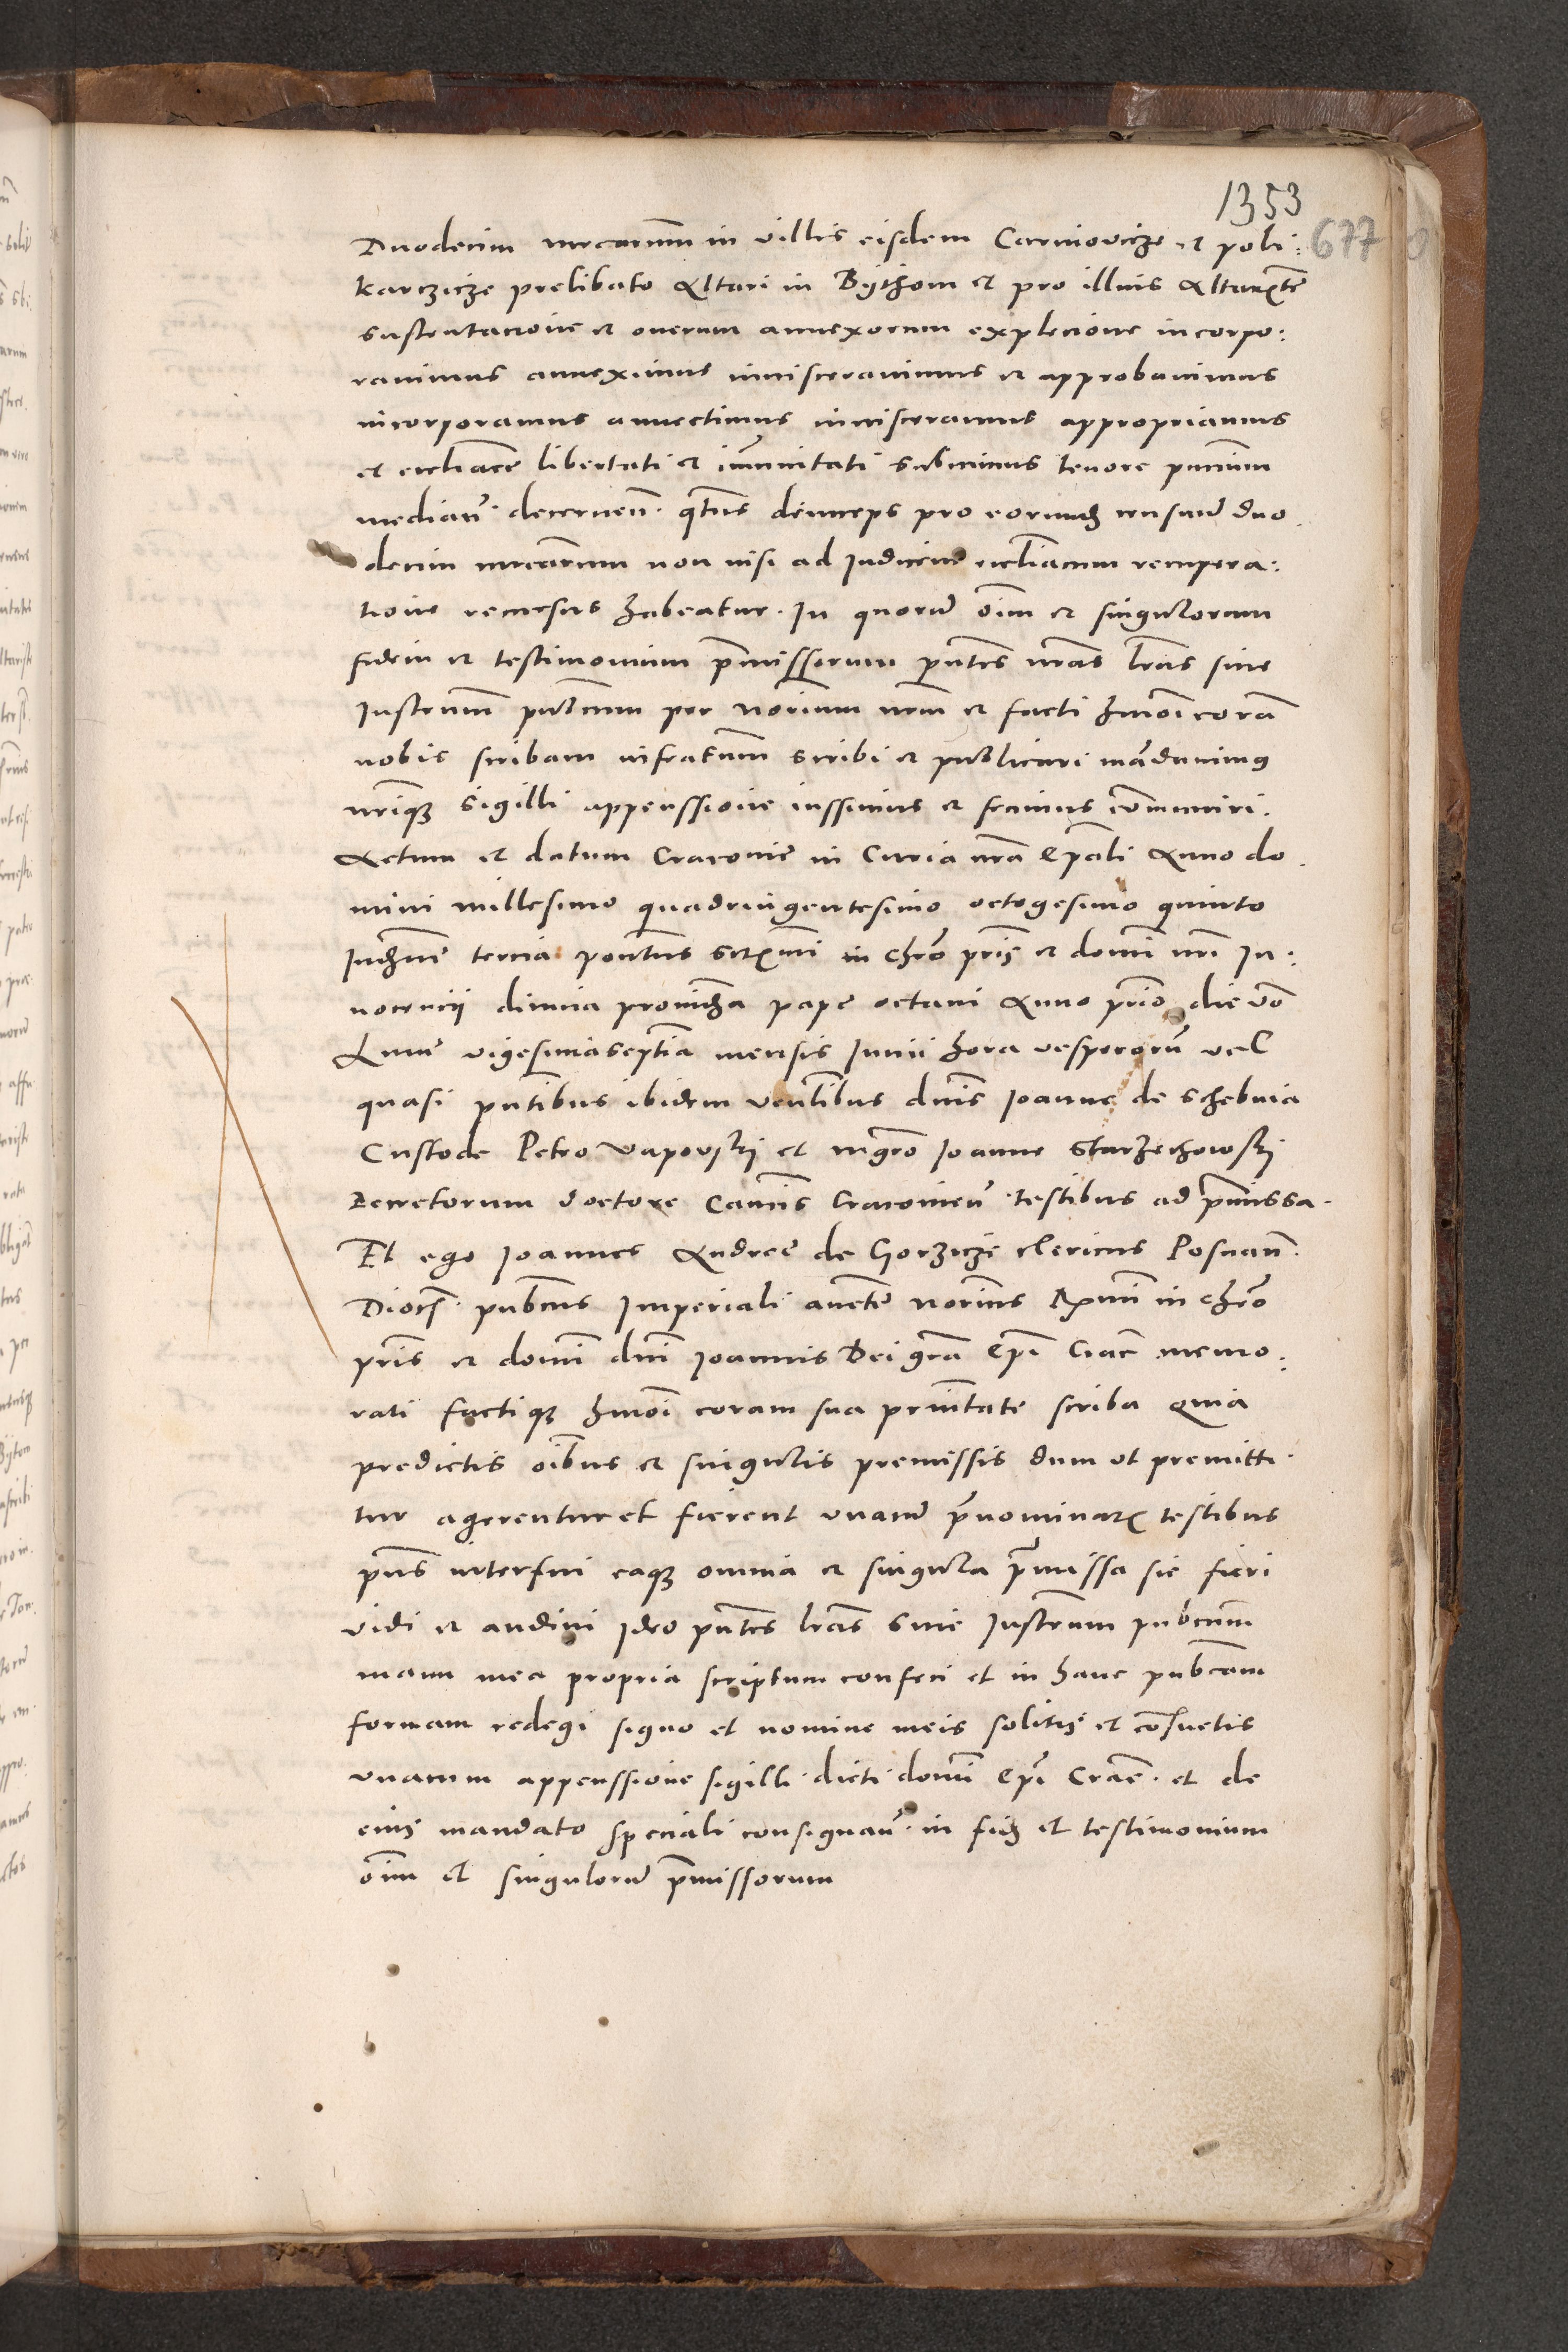 1353
677
Duodecim mrcarum in villis eisdem Carniovicze et poli:
karczicze prelibato Altari in Bythom et pro illius Altaristae
sustentacione et onerum annexorum explecione incorpo:
ravimus anneximus invisceravimus et approbavimus
incorporamus annectimus invisceramus appropriamus
et eccliace libertati et imunitati subiicimus tenore pncium
median. decernen. qtnus deinceps pro eorundz censuum duo
decim mrcarum non nisi ad Iudicem eccliacum recupera:
tione recursus habeatur. In quorum oim et singulorum
fidem et testimonium pmissorum pntes nras lras sive
Instrumm publicum per Norium nrm et facti hmoi coram
nobis scribam infrascriptum scribi et publicari madavimus
nrique sigilli appenssione iussimus et fecimus comuniri.
Actum et datum Cracovie in Curia nra Epali Anno do
mini millesimo quadringentesimo octogesimo quinto
Indne tercia pontus Scissimi in chro pris et domi nri In:
nocencii divina providna pape octavi Anno prio die vo
Lune vigesima septia mensis Iunii hora vesperorum vel
quasi pntibus ibidem venlibus dnis Ioanne de Schebnia
Custode Petro Vapovski et mgro Ioanne Starzechowski
Decretorum doctore Canicis Cracovien. testibus ad pmissa.
Et ego Ioannes Andree de Gorzicze clericus Posnan.
Dioces. pubcus Imperiali aucte norius Rmi in chro
pris et domi dni Ioannis Dei gra Epi Crac memo:
rati factique hmoi coram sua pnitate scriba Quia
predictis oibus et singulis premissis dum ut premitti
tur agerentur et fierent unacum prenominatis testibus
pns interfui eaque omnia et singula premissa sic fieri
vidi et audivi Ideo pntes lras sive Instrum pubcum
manu mea propria scriptum confeci et in hanc pubcam
formam redegi signo et nomine meis solitis et consuetis
unacum appenssione sigilli dicti domi Epi Crac. et de
eius mandato speciali consignan. in fidz et testimonium
oim et singulorum pmissorum